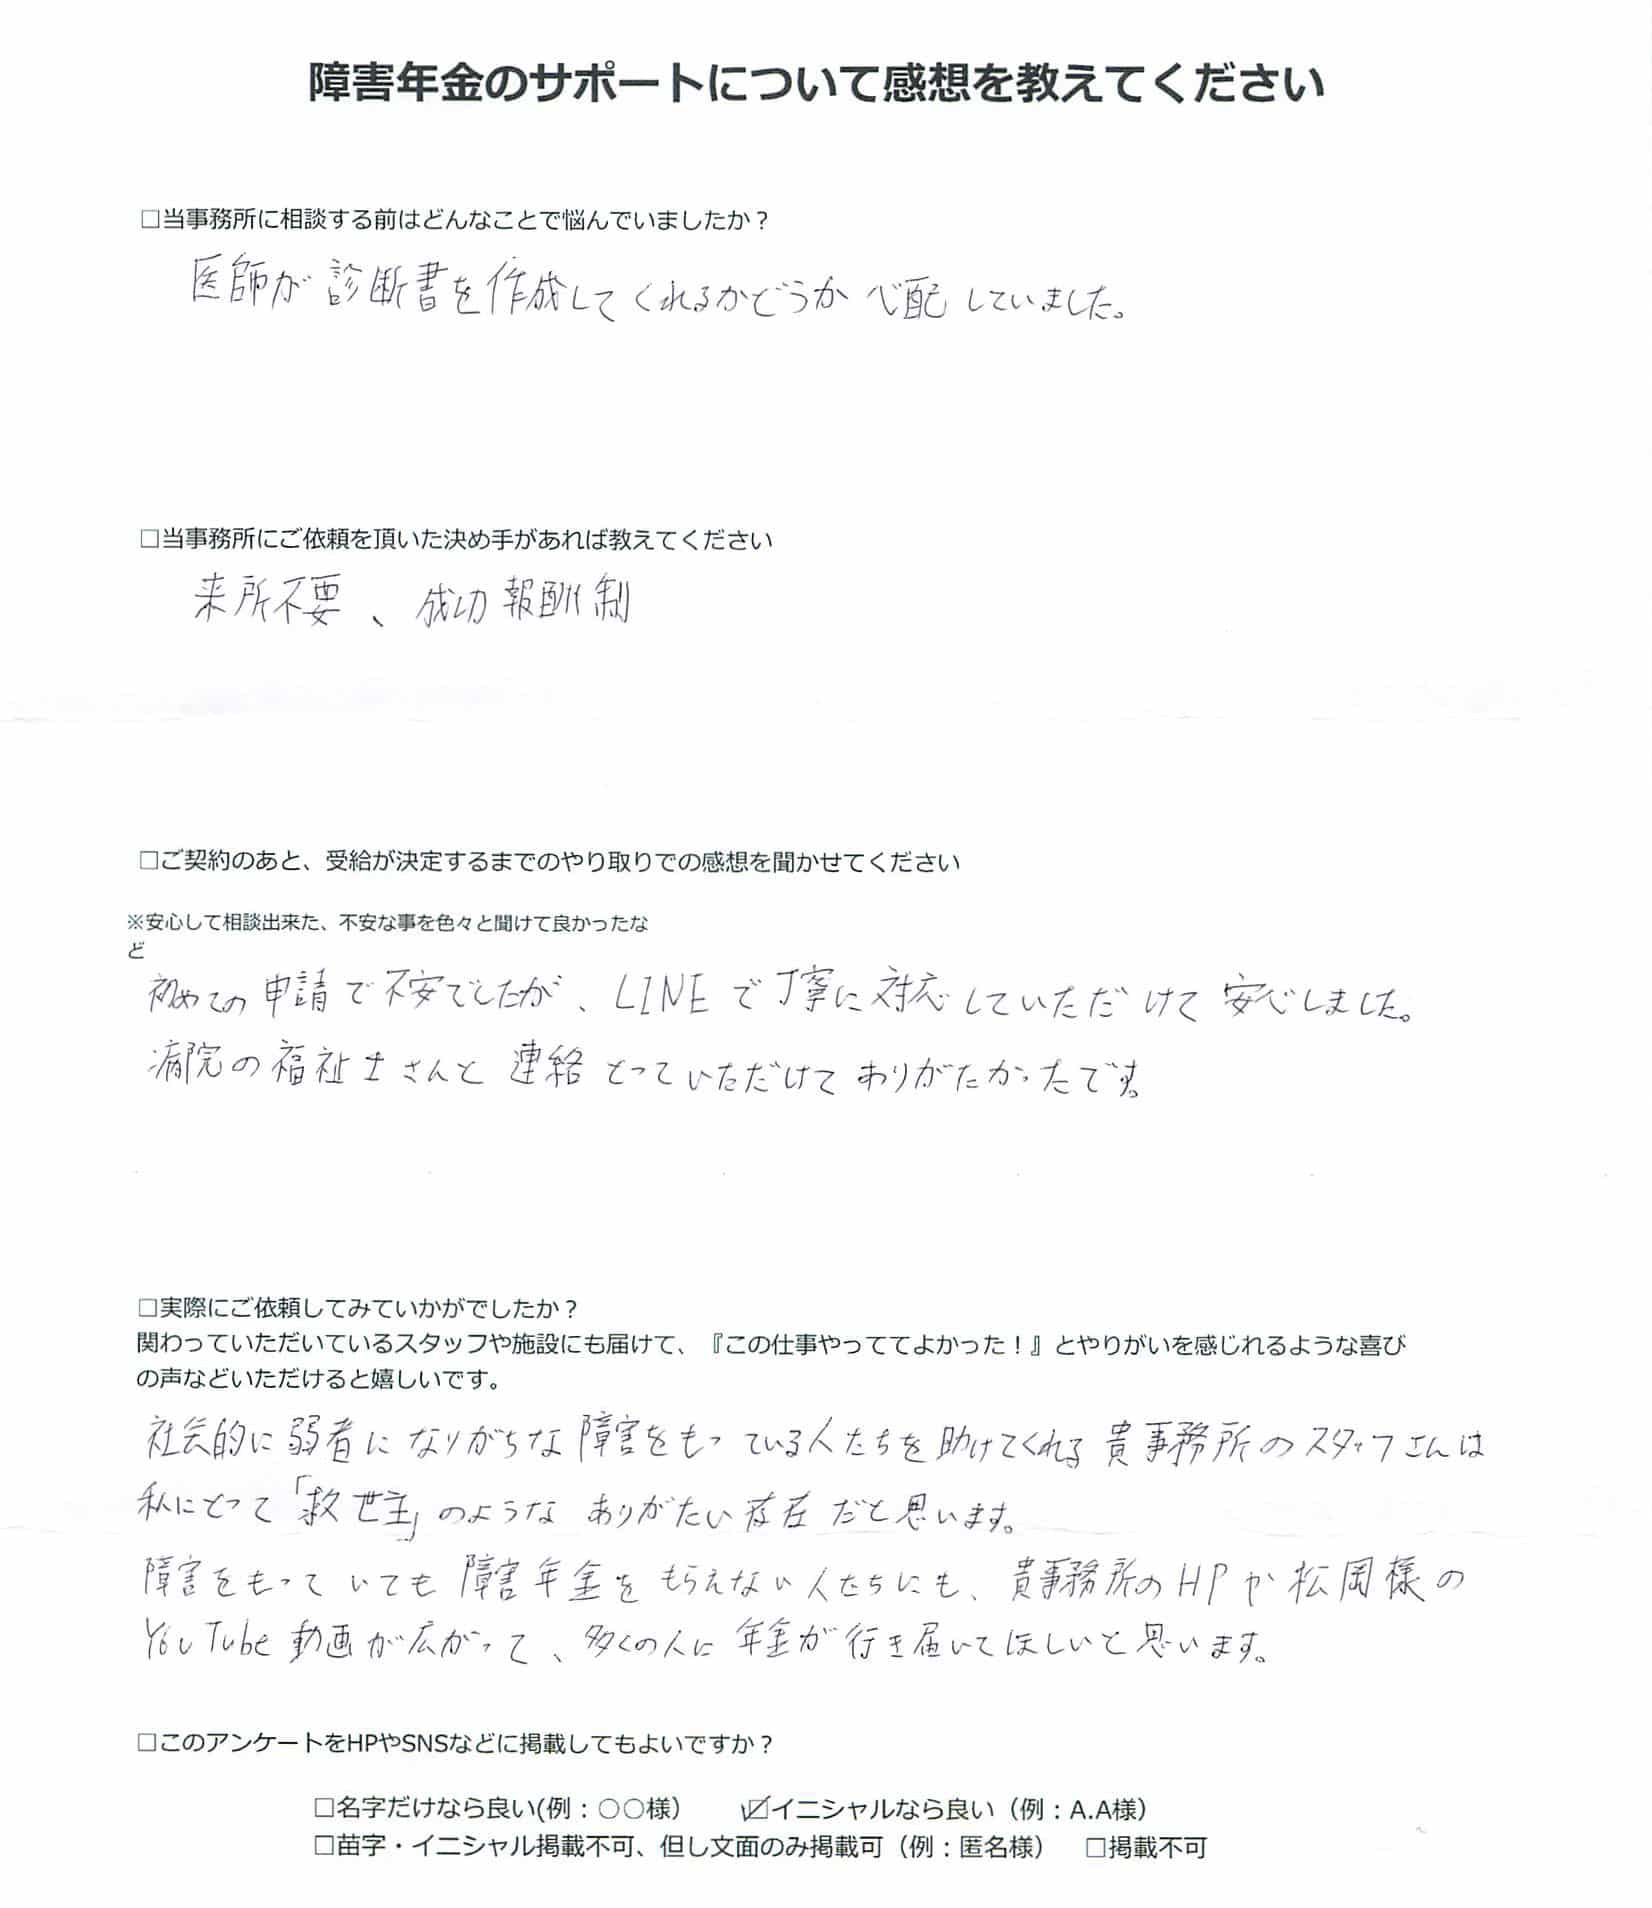 障害年金のサポートについて感想を教えてください
□当事務所に相談する前はどんなことで悩んでいましたか？
医師が診断書を作成してくれるかどうか心配していました。
□当事務所にご依頼を頂いた決め手があれば教えてください
来所不要、成功報酬制
□ご契約のあと、受給が決定するまでのやり取りでの感想を聞かせてください
※安心して相談出来た、不安な事を色々と聞けて良かったな
ど
初めての申請で不安でしたが、LINEで丁寧に対応していただけて安心しました。
病院の福祉士さんと連絡とっていただけてありがたかったです。
□実際にご依頼してみていかがでしたか？
関わっていただいているスタッフや施設にも届けて、『この仕事やっててよかった！』とやりがいを感じれるような喜び
の声などいただけると嬉しいです。
社会的に弱者になりがちな障害をもっている人たちを助けてくれる貴事務所のスタッフさんは
私にとって「救世主」のようなありがたい存在だと思います。
障害をもっていても障害年金をもらえない人たちにも、貴事務所のHPや松岡様の
YouTube動画が広がって、多くの人に年金が行き届いてほしいと思います。
□このアンケートをHPやSNSなどに掲載してもよいですか？
□名字だけなら良い(例：〇〇様） ☑イニシャルなら良い（例：A.A様）
□苗字・イニシャル掲載不可、但し文面のみ掲載可（例：匿名様） □掲載不可